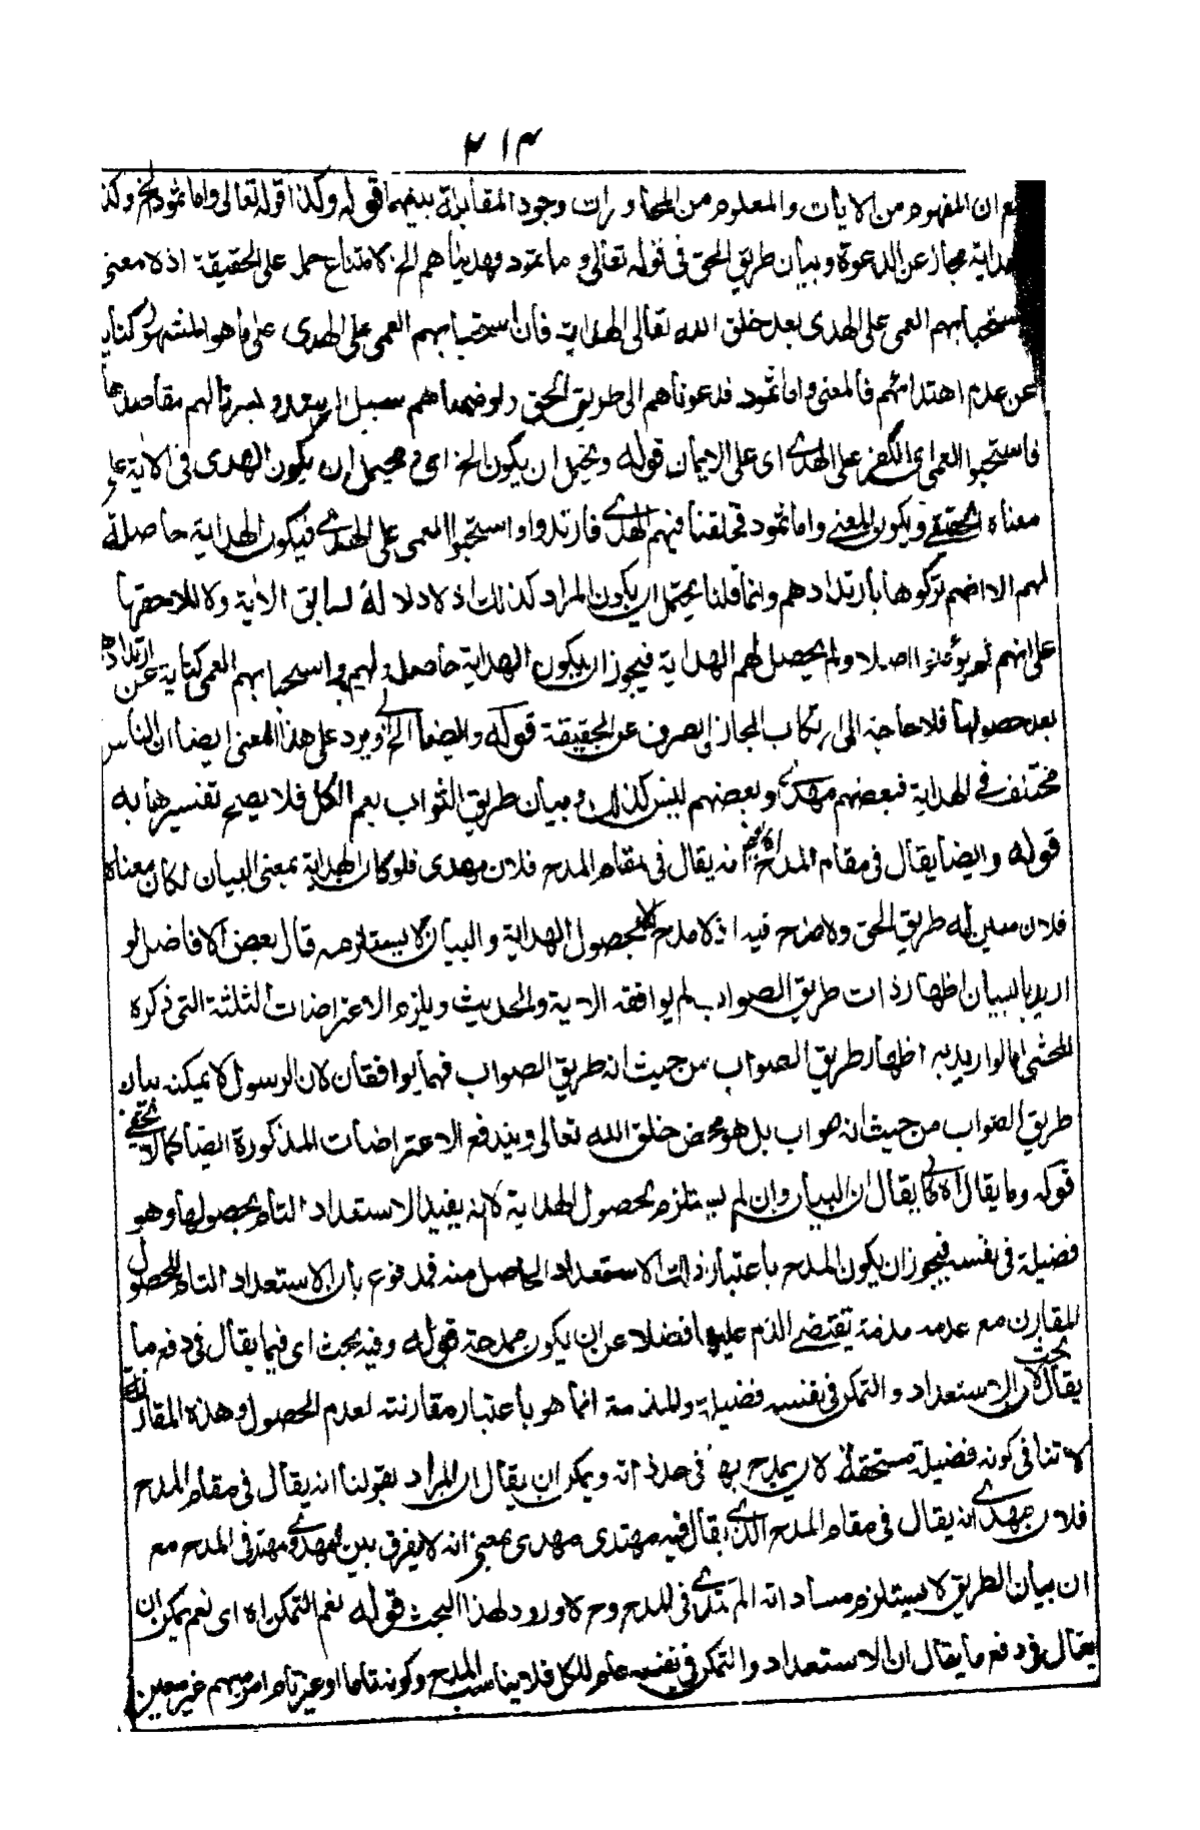 ٢١٣
ان المفهوم من الايات والمعلوم من المحاورات وجود المقابلة بينهما قوله وكذا قوله تعالى واما ثمود الخ وكذ
مجاز عن الدعوة وبيان طريق الحق في قوله تعالى واما ثمود فهديناهم الخ لامتناع حمله على الحقيقة اذ لا معنى
بهم العمى على الهدى بعد خلق الله تعالى الهداية فان استحبابهم العمى على الهدى على ما هو المشهور كناية
عن عدم اهتدائهم فالمعنى واما ثمود فدعوناهم الى طريق الحق سبيل لهم مقاصدها
فاستحبوا العمى اى الكفر على الهدى اى على الايمان قوله ويحتمل ان يكون الخ اى ويحتمل ان يكون الهدى في الاية على
معناه الحقيقي ويكون المعنى واما ثمود فخلقنا فيهم الهدى فارتدوا واستحبوا العمى على الهدى فيكون الهداية حاصلة
لهم الا انهم تركوها بارتدادهم وانما قلنا يحتمل ان يكون المراد كذلك اذ لا دلالة لسابق الاية ولا للاحقها
على انهم لم يؤمنوا اصلا ولم يحصل لهم الهداية فيجوز ان يكون الهداية حاصلة لهم واستحبابهم العمى كناية عن ارتدادهم
بعد حصولها فلا حاجة الى ارتكاب المجاز اى صرف عن الحقيقة قوله وايضا الخ ويرد على هذا المعنى ايضا ان الناس
مختلف في الهداية فبعضهم مهدى وبعضهم ليس كذلك وبيان طريق الثواب يعم الكل فلا يصح تفسيرها به
قوله وايضا يقال في مقام المدح اه انه يقال في مقام المدح فلان مهدى فلو كان الهداية بمعنى البيان لكان معناه
فلان مبين له طريق الحق ولا مدح فيه اذ لا مدح الا لحصول الهداية والبيان لا يستلزمه قال بعض الافاضل لو
اريد بالبيان اظهار ذات طريق الصواب لم يوافقه الاية والحديث ويلزم الاعتراضات الثلثة التي ذكره
المحشى اما لو اريد به اظهار طريق الصواب من حيث انه طريق الصواب فهما يوافقان لان الرسول لا يمكنه بيان
طريق الصواب من حيث انه صواب بل هو محض خلق الله تعالى ويندفع الاعتراضات المذكورة ايضا كما لا يخفى
قوله وما يقال اه اى يقال ان البيان وان لم يستلزم لحصول الهداية لانه يفيد الاستعداد التام لحصولها وهو
فضيلة في نفسه فيجوز ان يكون المدح باعتبار ذلك الاستعداد الحاصل منه فمدفوع بان الاستعداد التام للحصول
المقارن مع عدمه مذمة يقتضي الذم عليها فضلا عن ان يكون ممدحة قوله وفيه بحث اى فيما يقال في دفع ما
يقال بحث لان الاستعداد والتمكن في نفسه فضيلة والمذمة انما هو باعتبار مقارنته لعدم الحصول وهذه المقارنة
لا تنافى كونه فضيلة مستحقة لان يمدح بها في حد ذاته ويمكن ان يقال ان المراد بقولنا انه يقال في مقام المدح
فلان مهدى انه يقال في مقام المدح الذى يقال فيه مهتدى مهدى بمعنى انه لا يفرق بين مهدى ومهتد في المدح مع
ان بيان الطريق لا يستلزم مساواته المهتدى في المدح وح لا ورود لهذا البحث قوله نعم التمكن اه اى نعم يمكن ان
يقال في دفع ما يقال ان الاستعداد والتمكن في نفسه عام للكل فلا يناسب المدح وكونه تاما او غير تام امر مبهم غير معين